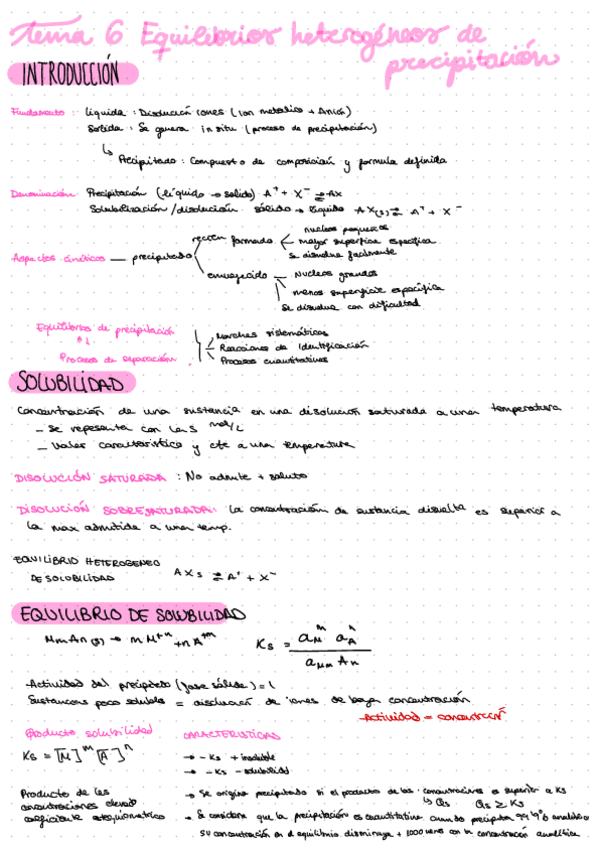 Tema 6 Equilibrios heterogéneos de
precipitación
INTRODUCCIÓN
Fundamento : líquida : Disoluciones (ion metalico + Anión)
Solida : Se genera in situ (proceso de precipitación)
↳ Precipitado : Compuesto de composición y formula definida
Denominación Precipitación (líquido → solido) A⁺ + X⁻ ⇌ AX
Solubilización / disolución sólido → líquido AX(s) ⇌ A⁺ + X⁻
nucleos pequeños
recien formado mayor superficie especifica
se disuelve facilmente
Aspectos cinéticos — precipitado
envejecido Nucleos grandes
menos superficie especifica
Se disuelve con dificultad
Equilibrios de precipitación
Marchas sistemáticas
Reacciones de Identificación
Procesos de separación
Procesos cuantitativos
SOLUBILIDAD
Concentración de una sustancia en una disolución saturada a una temperatura
- Se representa con la S mol/L
- Valor caracteristico y cte a una temperatura
DISOLUCIÓN SATURADA : No admite + soluto
DISOLUCIÓN SOBRESATURADA: la concentración de sustancia disuelta es superior a
la max admitida a una temp.
EQUILIBRIO HETEROGENEO
DE SOLUBILIDAD AXs ⇌ A⁺ + X⁻
EQUILIBRIO DE SOLUBILIDAD
MmAn(s) → mM⁺ⁿ + nA⁺ᵐ Ks = aMᵐ aAⁿ / aMmAn
-Actividad del precipitado (fase sólida) = 1
Sustancias poco solubles = disolución de iones de baja concentración
-Actividad = concentración
Producto solubilidad CARACTERISTICAS
Ks = [M]ᵐ [A]ⁿ
→ - Ks + insoluble
→ - Ks - solubilidad
Producto de las
concentraciones elevado
coeficiente estequiometrico
→ Se origina precipitado si el producto de las concentraciones es superior a Ks
↳ Qs Qs ≥ Ks
→ Se considera que la precipitación es cuantitativa cuando precipita 99'9%
su concentración en el equilibrio disminuya + 1000 veces con la concentración analítica